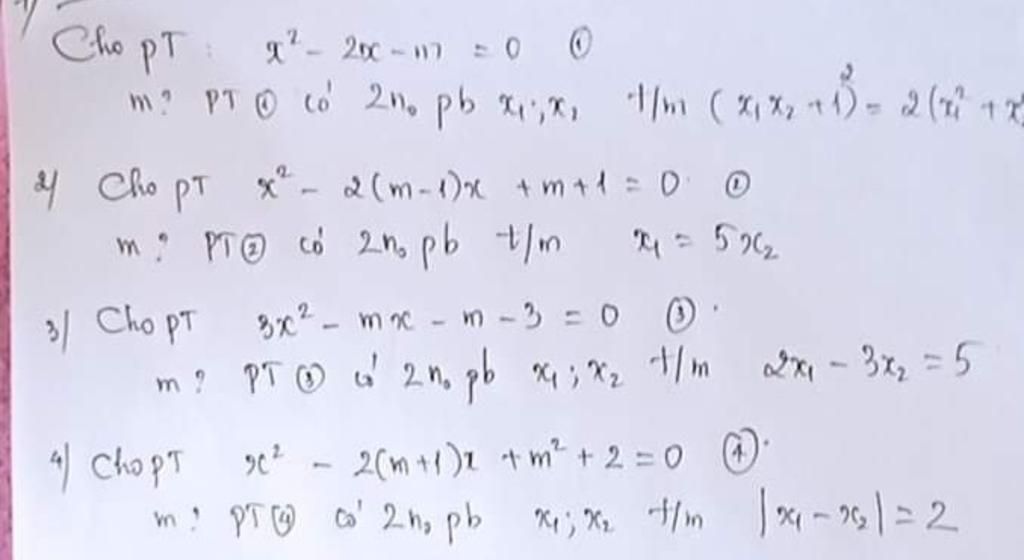 1/
Cho pT: x² - 2x - m = 0 ①
m? PT ① có 2n₀ pb x₁; x₂ t/m (x₁x₂ + 1)² = 2(x₁² + x
2/ Cho pT x² - 2(m-1)x + m + 1 = 0 ②
m? PT ② có 2n₀ pb t/m x₁ = 5x₂
3/ Cho pT 3x² - mx - m - 3 = 0 ③.
m? PT ③ có 2n₀ pb x₁; x₂ t/m 2x₁ - 3x₂ = 5
4/ Cho pT x² - 2(m+1)x + m² + 2 = 0 ④.
m? PT ④ có 2n₀ pb x₁; x₂ t/m |x₁ - x₂| = 2